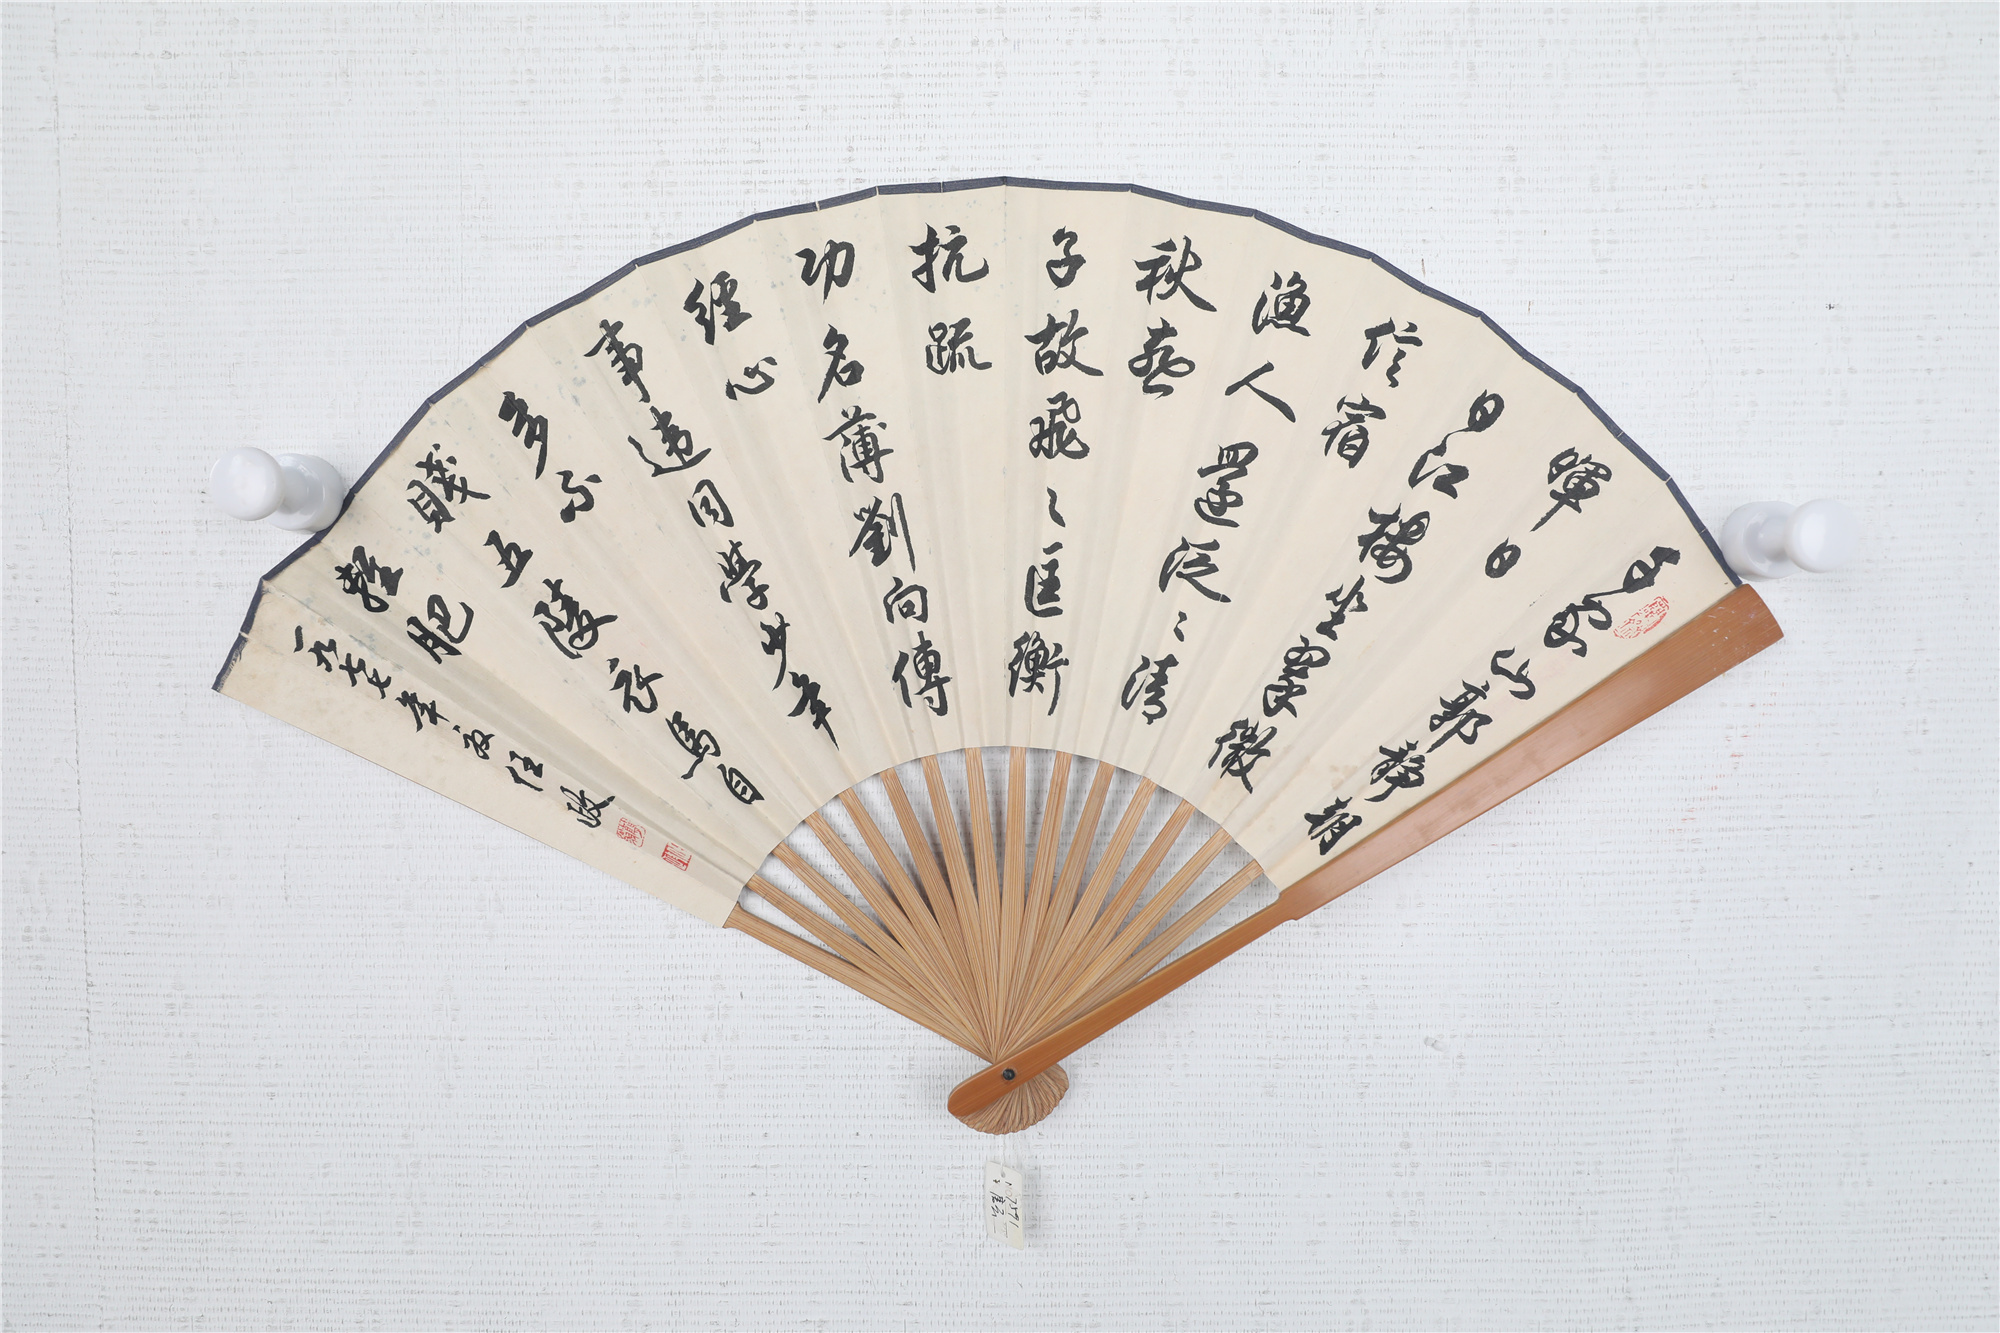 千家山郭靜朝
暉日
日江樓坐翠微
信宿
漁人還泛〻清
秋燕
子故飛〻匡衡
抗疏
功名薄劉向傳
經心
事違同學少年
多不
賤五陵衣馬自
輕肥
一九七七年夏任政